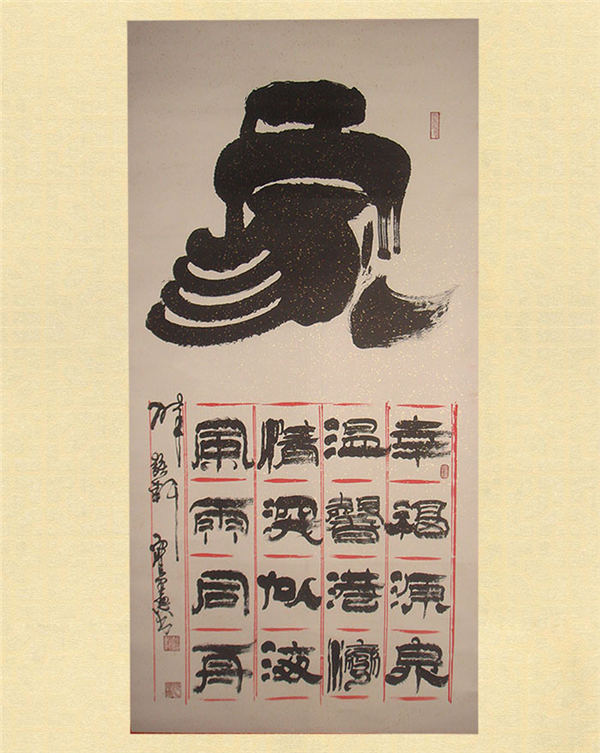 家
幸福源泉
温馨港湾
情深似海
风雨同舟